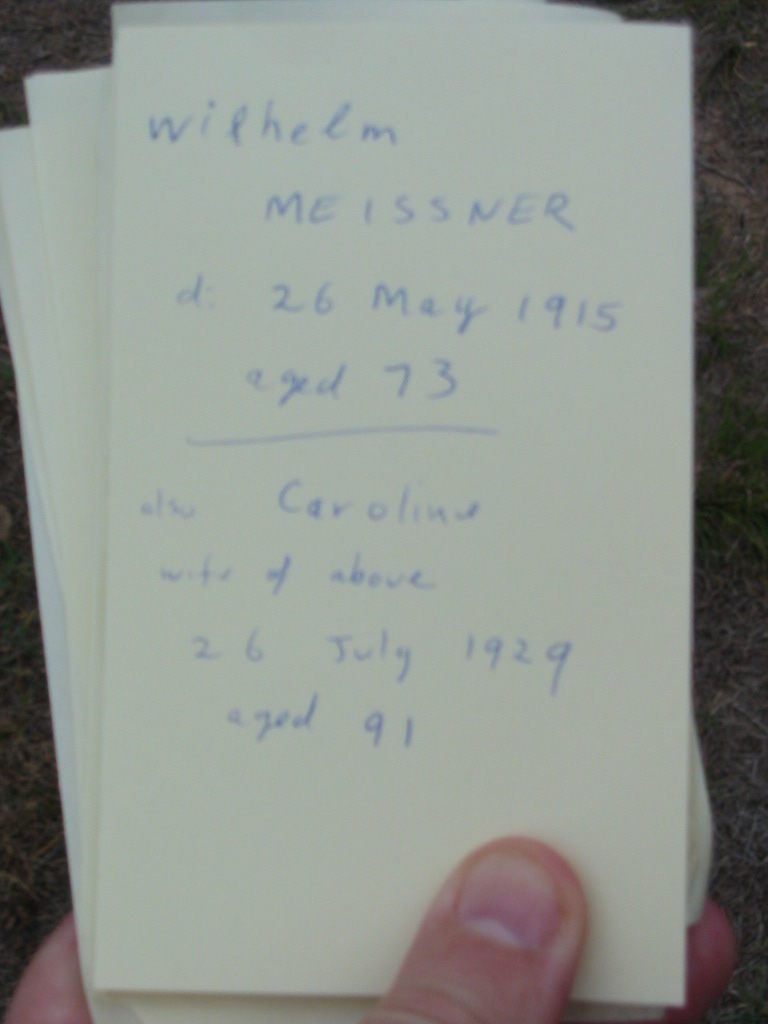 Wilhelm
MEISSNER
d: 26 May 1915
aged 73
also Caroline
wife of above
26 July 1929
aged 91